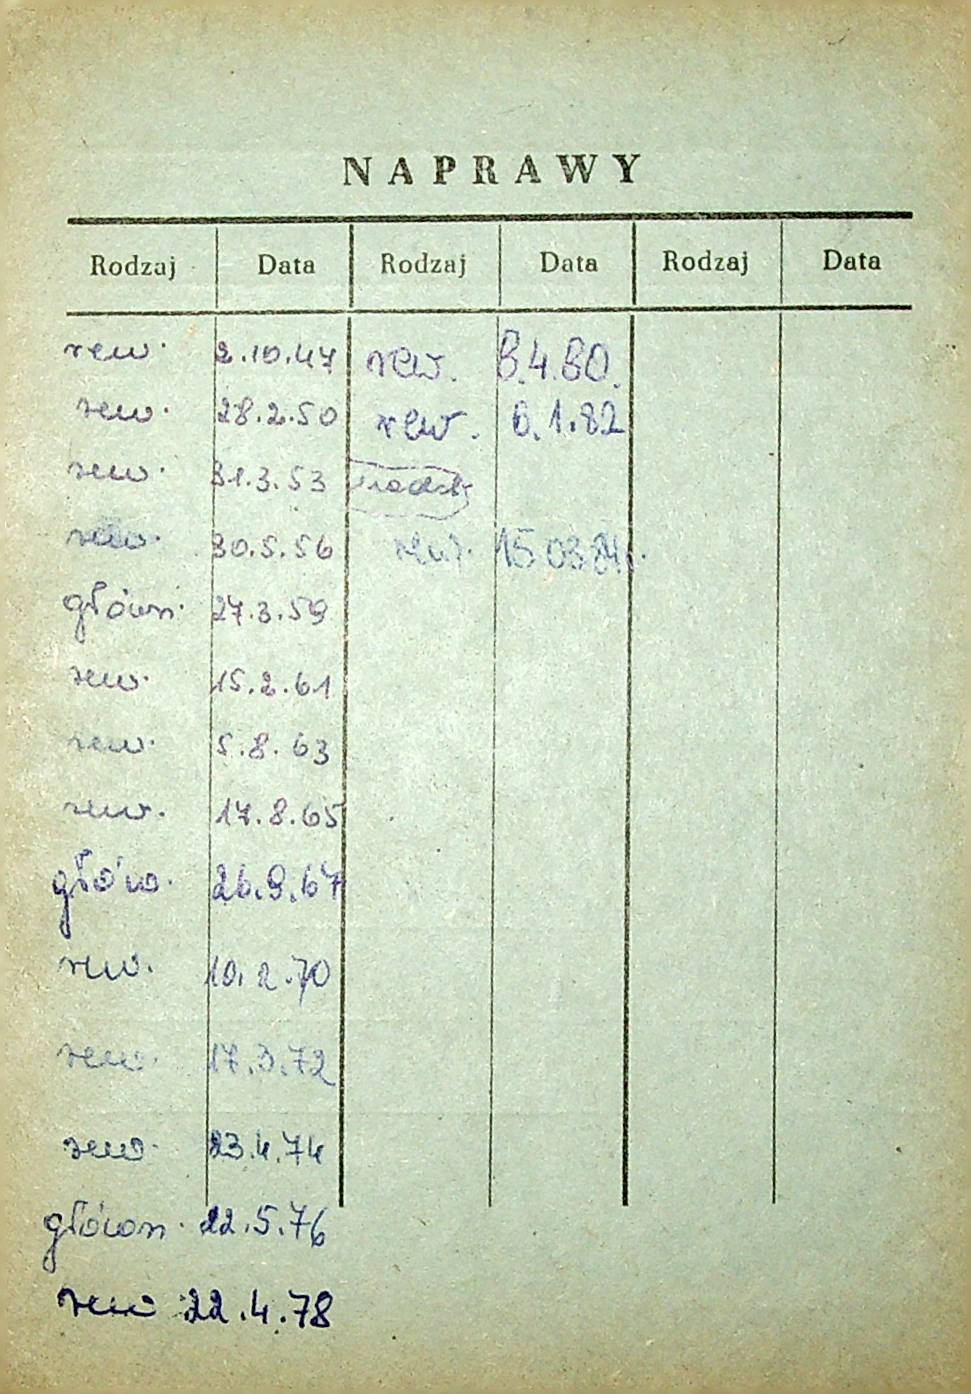 NAPRAWY
Rodzaj Data Rodzaj Data Rodzaj Data
rew. 2.10.47 rew. 8.4.80.
rew. 28.2.50 rew. 6.1.82
rew. 31.3.53
rew. 30.5.56 rew. 15.03.84r.
główn. 27.3.59
rew. 15.2.61
rew. 5.8.63
rew. 17.8.65
głów. 26.9.67
rew. 10.2.70
rew. 17.3.72
rew. 23.4.74
główn. 22.5.76
rew 22.4.78